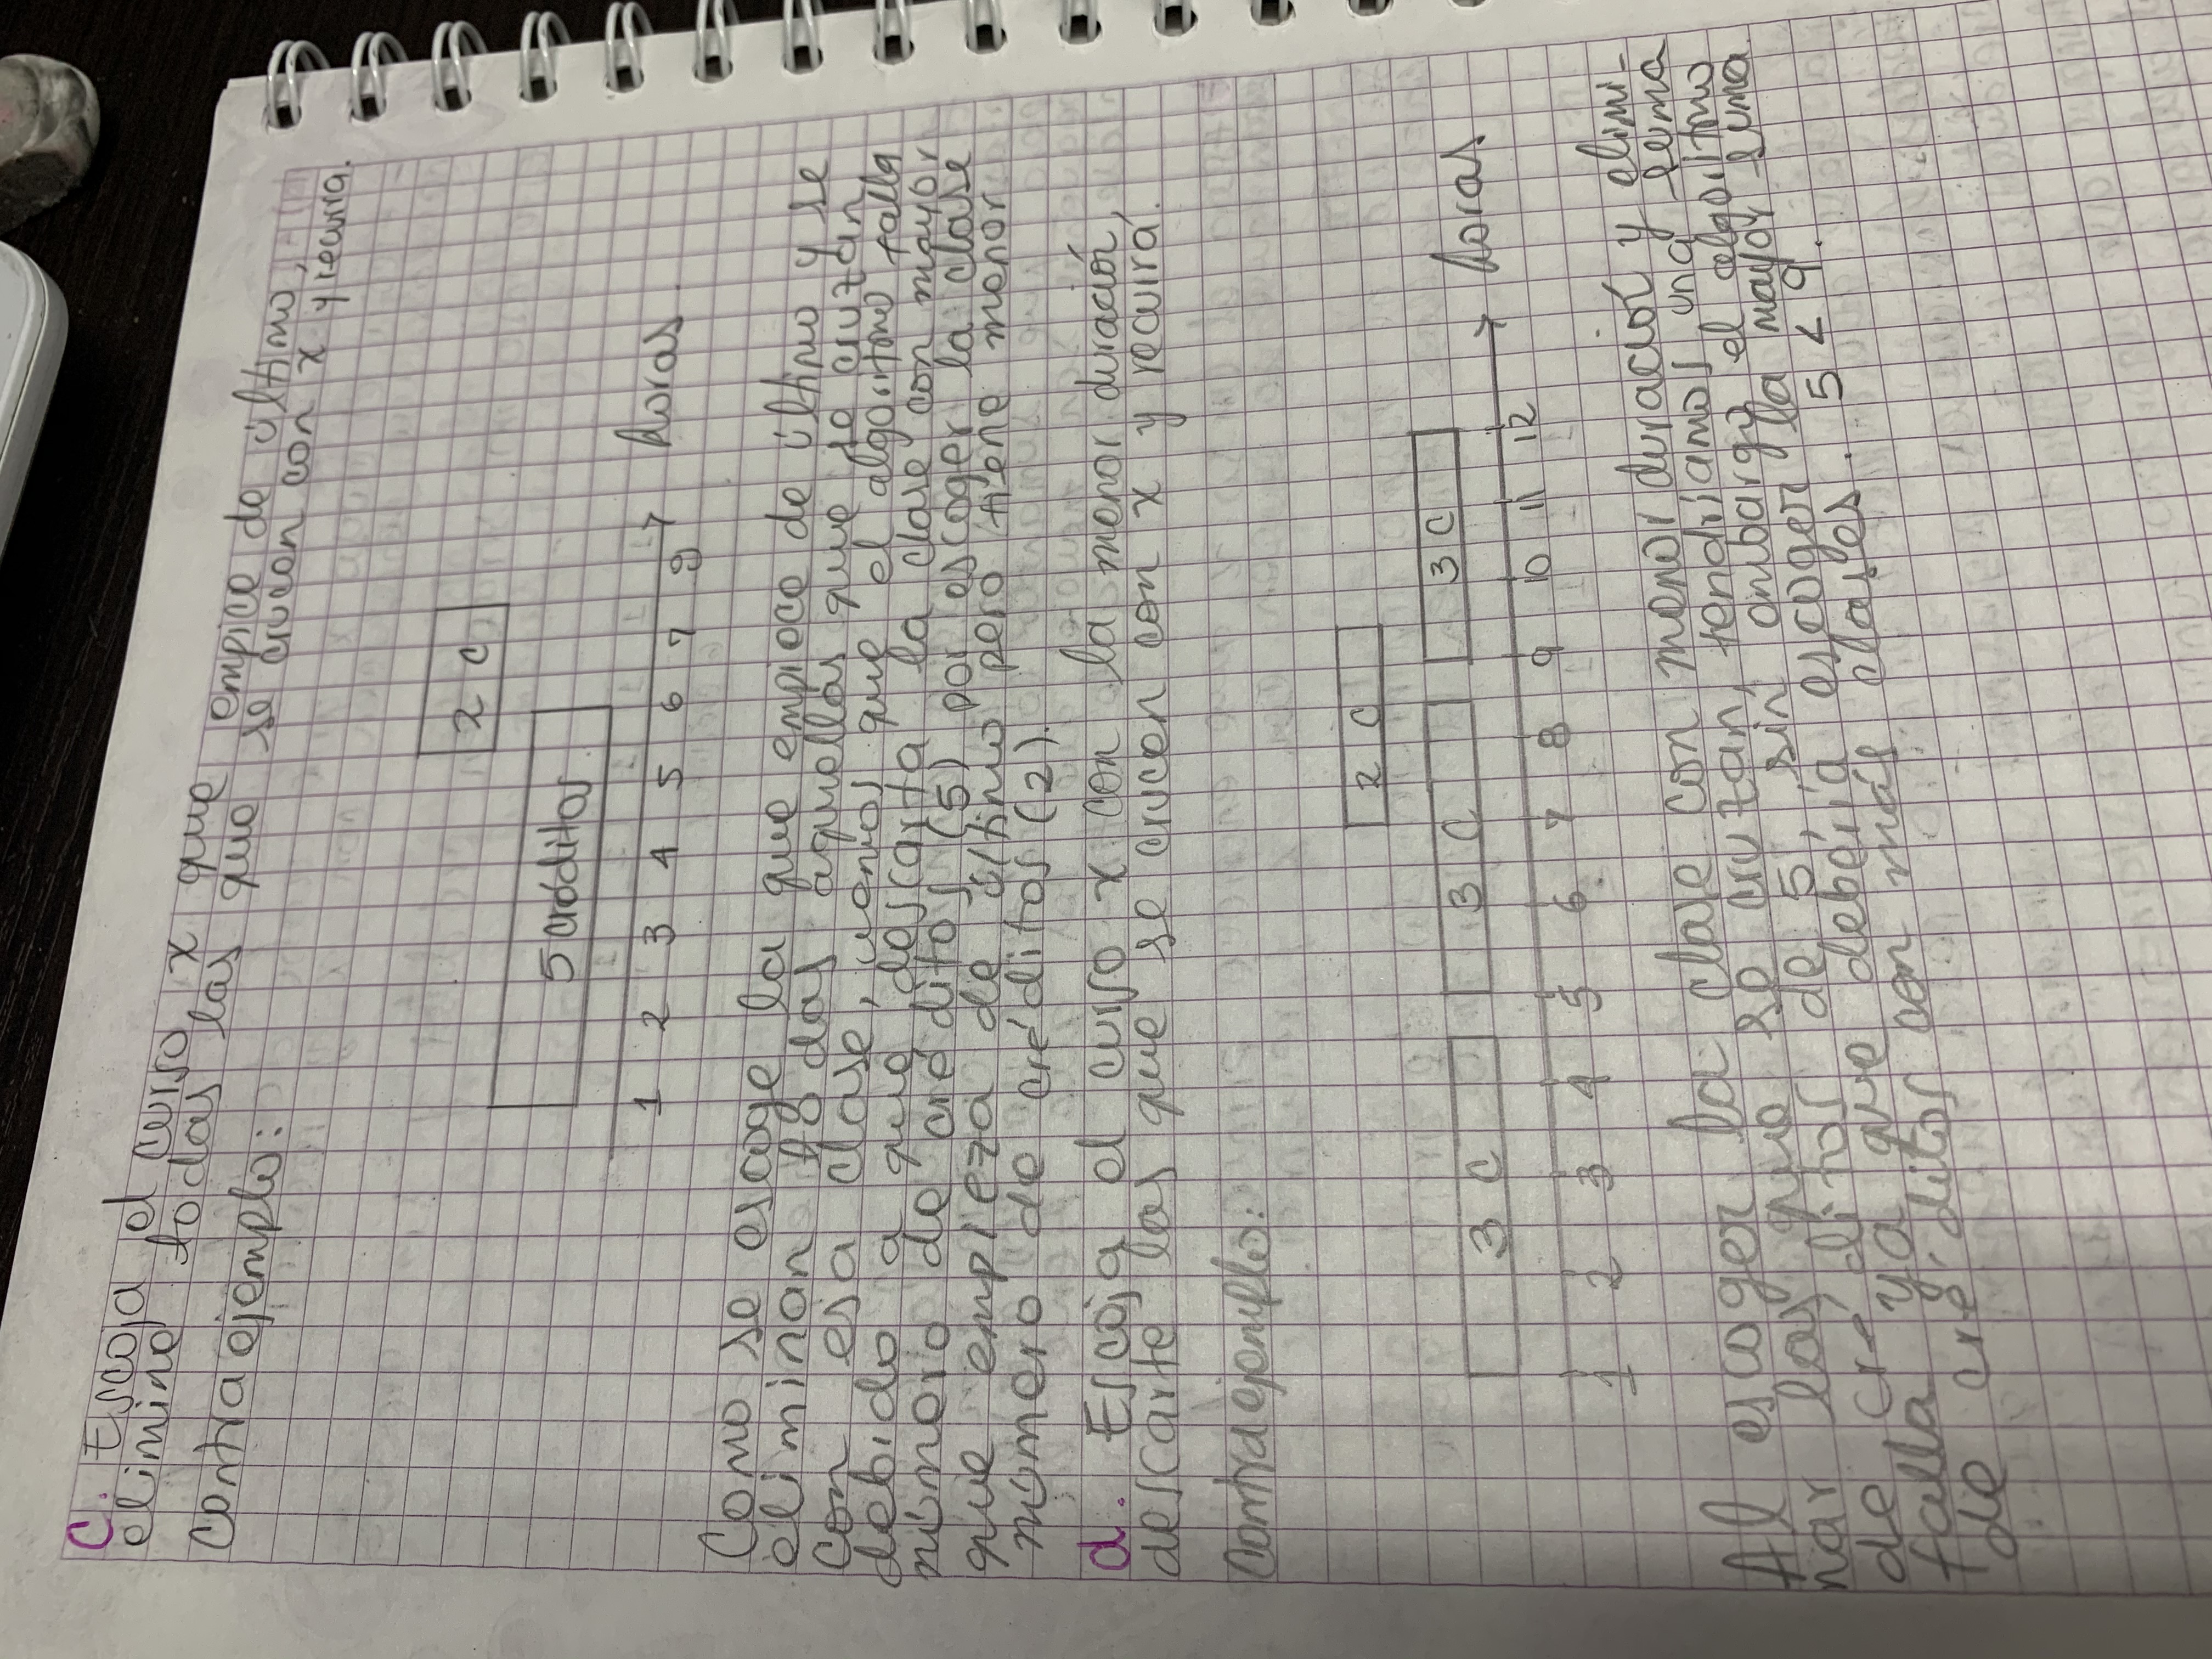 C. Escoja el curso x que empice de último,
elimine todas las que se crucen con x y recurra.
Contraejemplo:
2 C
5 créditos
1 2 3 4 5 6 7 8 horas
Como se escoge la que empiece de último y se
eliminan todas aquellas que se cruzan
con esa clase, vemos que el algoritmo falla
debido a que descarta la clase con mayor
número de créditos (5) por escoger la clase
que empieza de último pero tiene menor
número de créditos (2).
d. Escoja el curso x con la menor duración,
descarte las que se crucen con x y recurra.
Contraejemplo:
2 C
3 C 3 C 3 C
horas
1 2 3 4 5 6 7 8 9 10 11 12
Al escoger la clase con menor duración y elimi-
nar las que se cruzan, tendríamos una suma
de créditos de 5, sin embargo el algoritmo
falla ya que debería escoger la mayor suma
de créditos con más clases. 5 < 9.